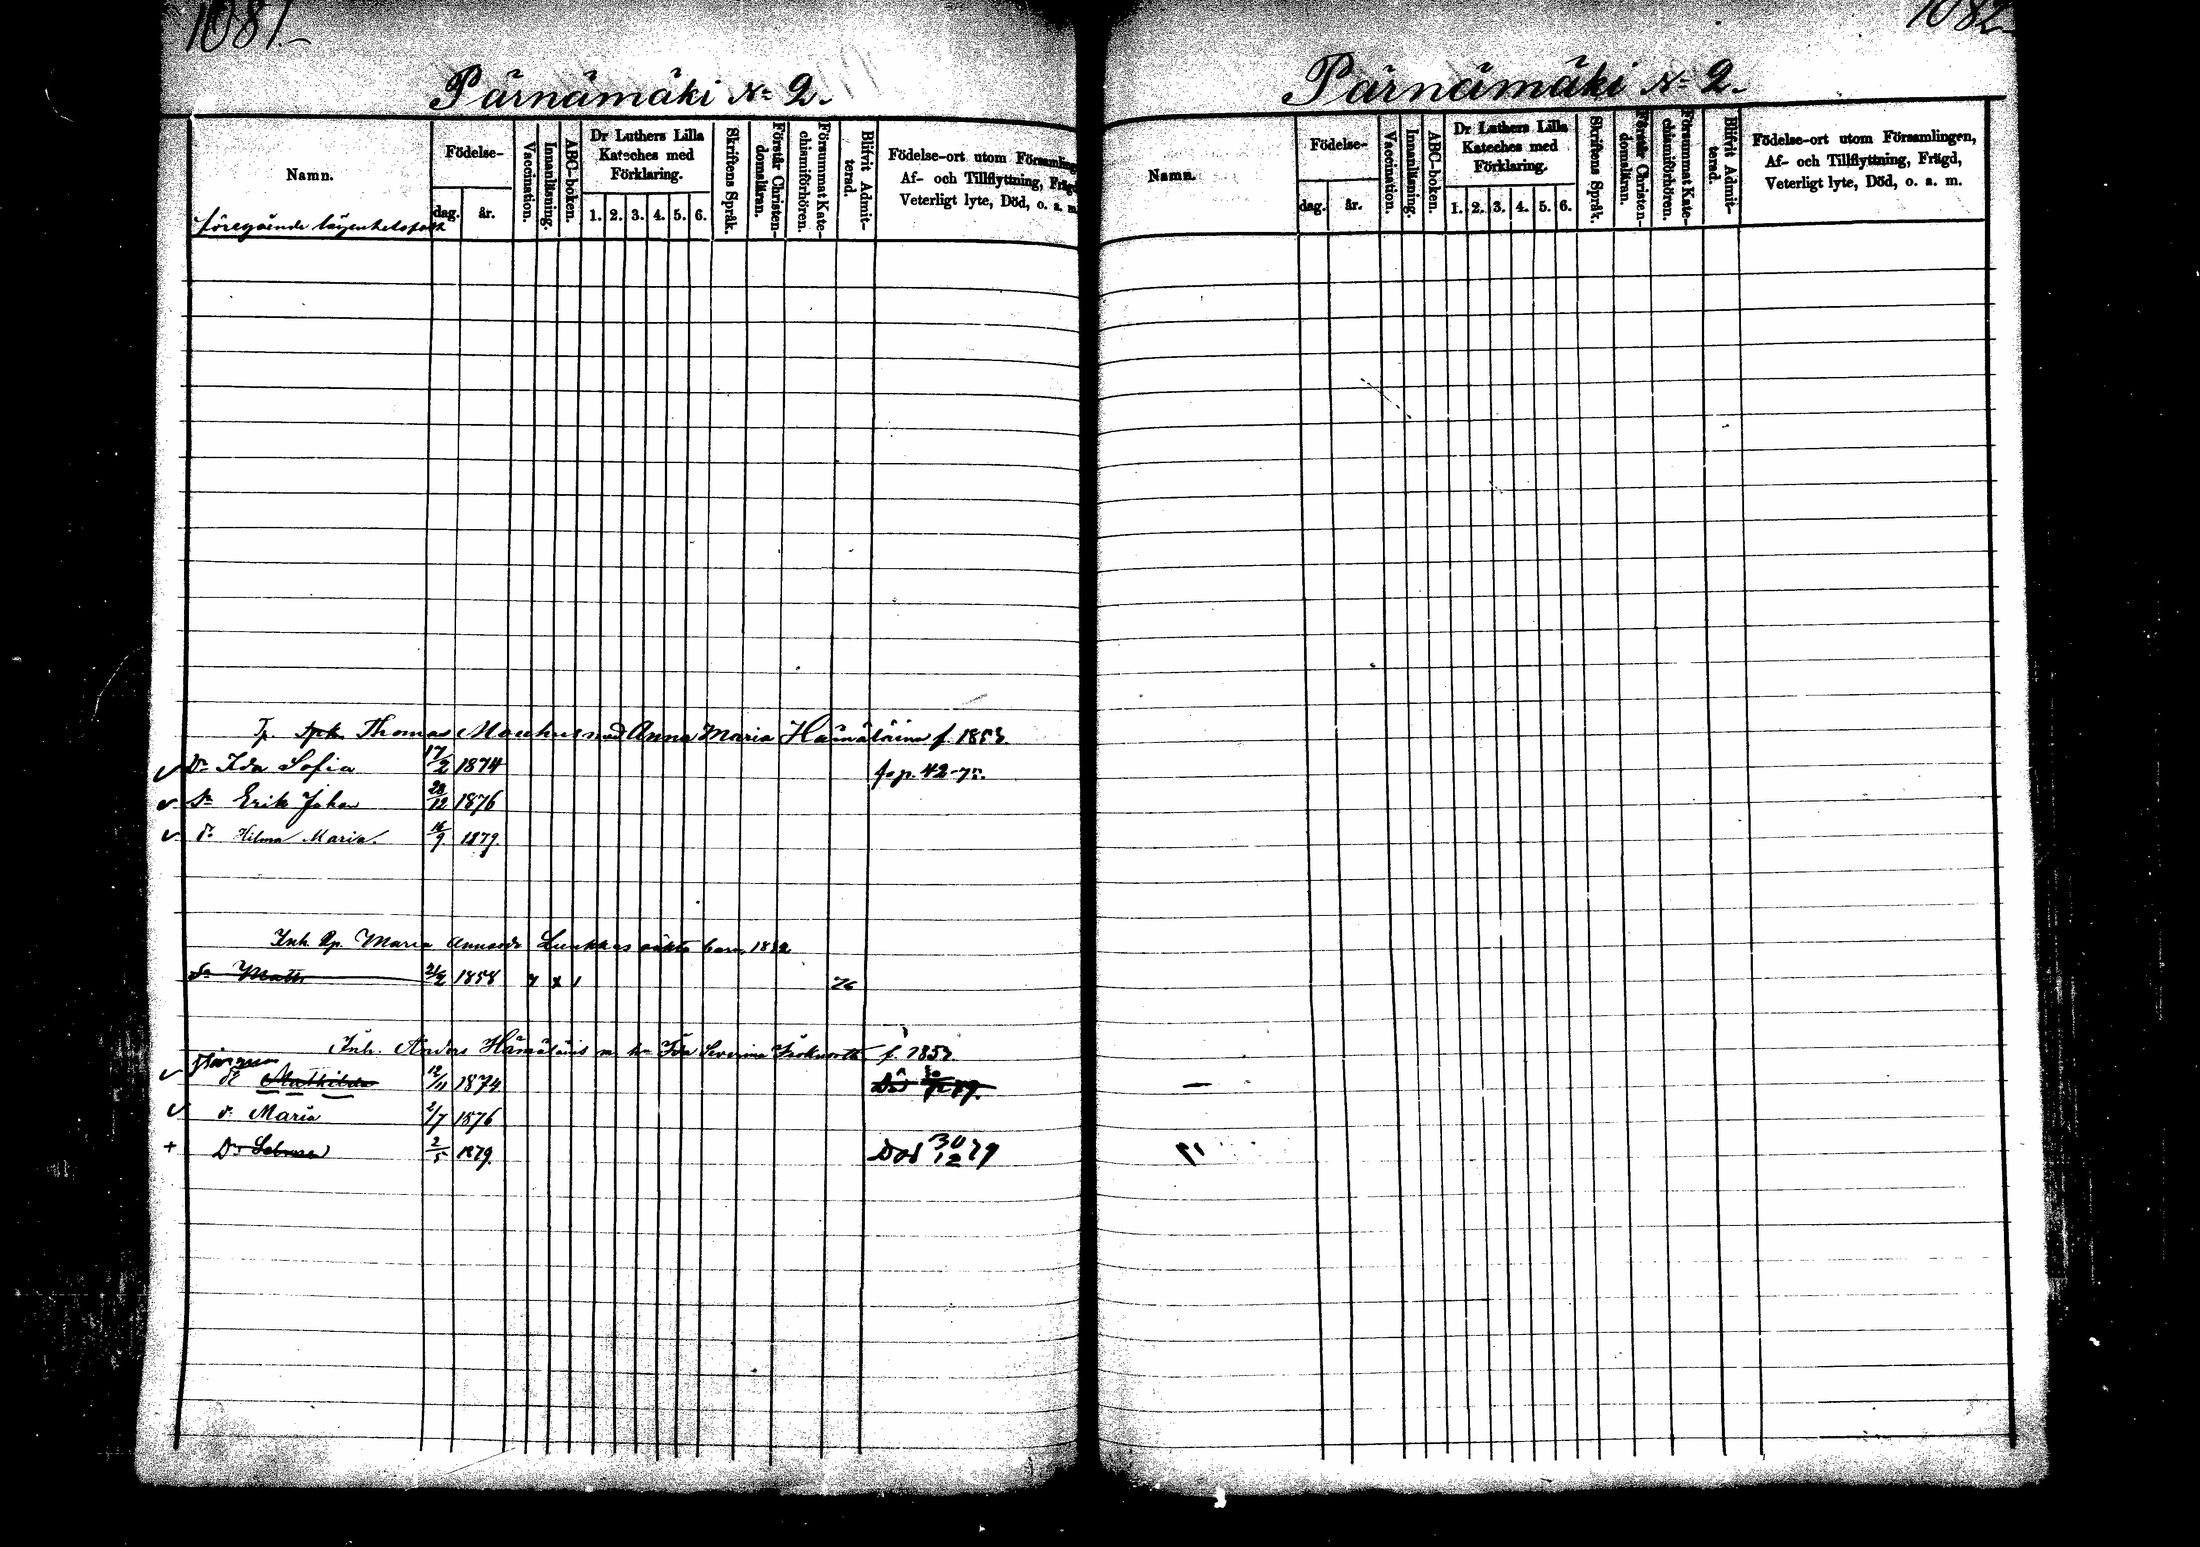 1081
Pärnämäki No 2.
Namn.
Födelse-
dag. år.
Vaccination.
Innanläsning.
ABC-boken.
Dr Luthers Lilla Kateches med Förklaring.
1. 2. 3. 4. 5. 6.
Skriftens Språk.
Förstår Christendomsläran.
Försummat Katechismiförhören.
Blifvit Admitterad.
Födelse-ort utom Församling
Af- och Tillflyttning, Fräg
Veterligt lyte, Död, o. a. m.
föregående
Thomas Anna Maria Hämäläinen f.
Dr Ida Sofia 17/2 1874 42
Sn Erik Johan 28/12 1876
dr Hilma Maria. 16/9 1879.
Inh. Maria barn
Sn Matts 1858 26
Inh. Anders m. Ida Severina f.
dr Mathilda 12/11 1874 Död
dr Maria 2/7 1876
Dr 2/5 1879. Död 30/12 79
1082
Pärnämäki No 2.
Namn.
Födelse-
dag. år.
Vaccination.
Innanläsning.
ABC-boken.
Dr Luthers Lilla Kateches med Förklaring.
1. 2. 3. 4. 5. 6.
Skriftens Språk.
Förstår Christendomsläran.
Försummat Katechismiförhören.
Blifvit Admitterad.
Födelse-ort utom Församlingen,
Af- och Tillflyttning, Frägd,
Veterligt lyte, Död, o. a. m.